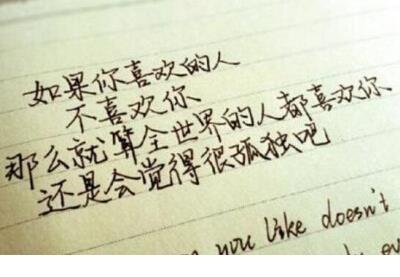 如果你喜欢的人
不喜欢你
那么就算全世界的人都喜欢你
还是会觉得很孤独吧
you like doesn't